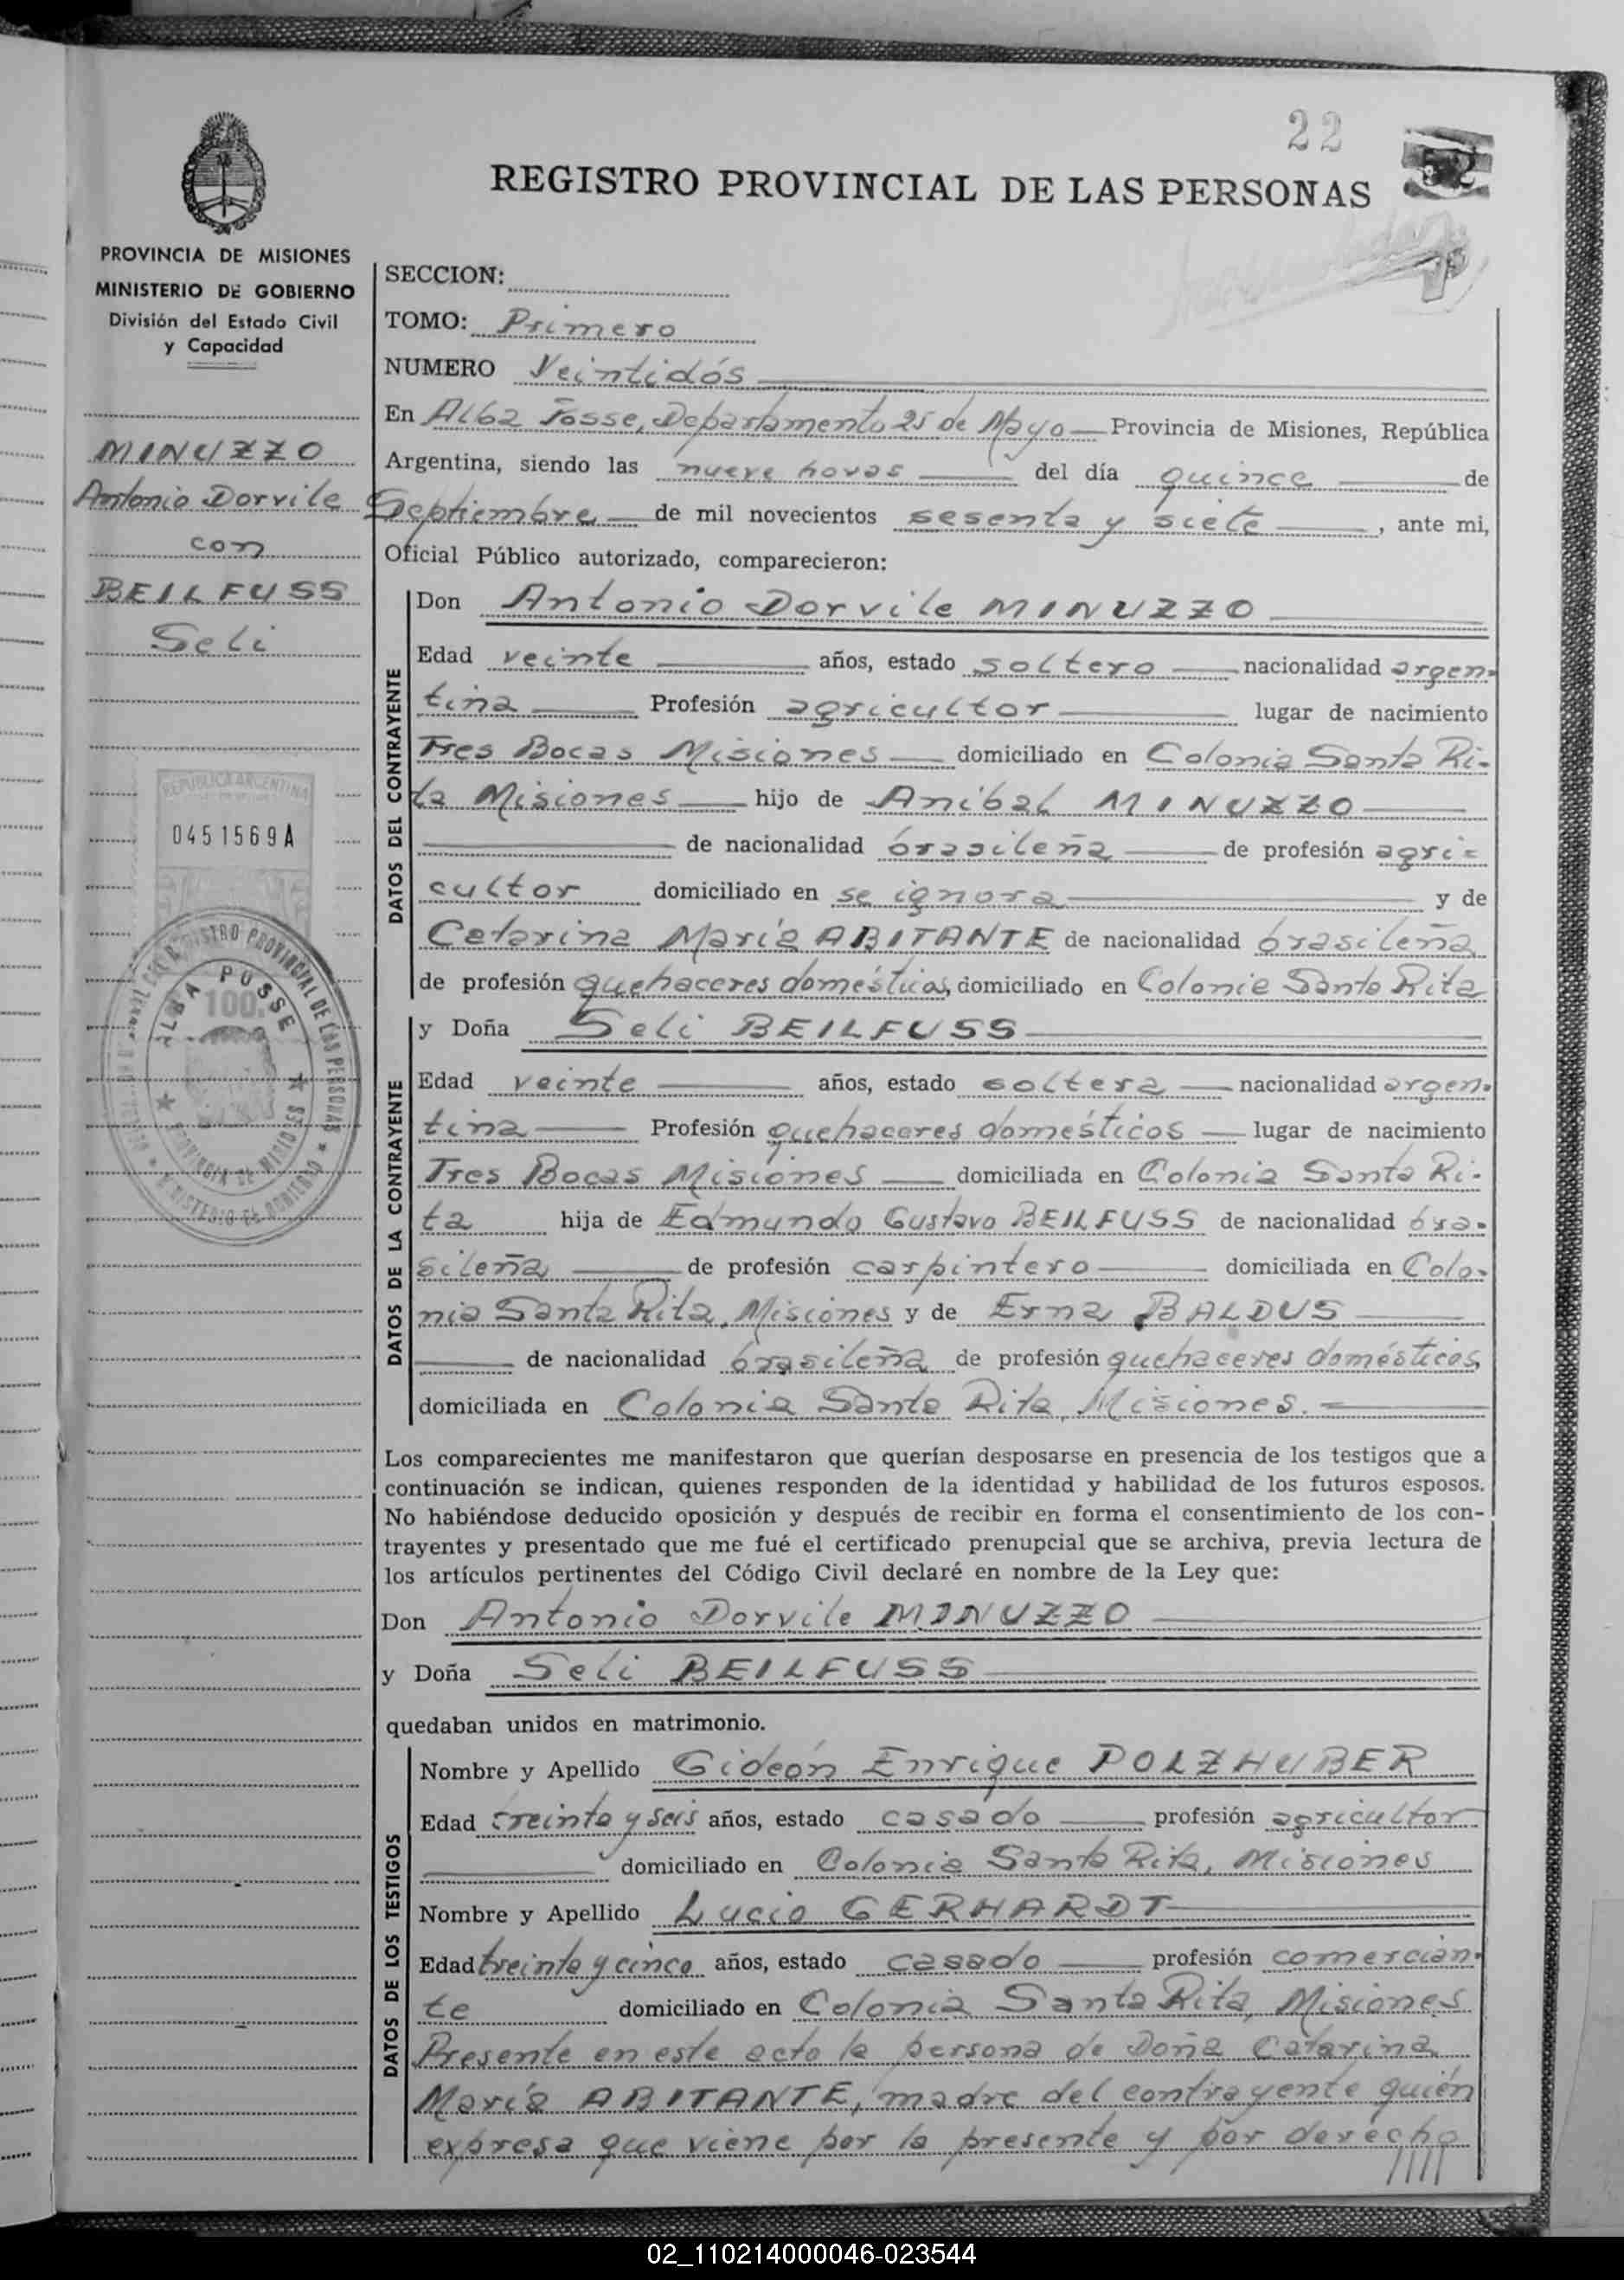 22
REGISTRO PROVINCIAL DE LAS PERSONAS
PROVINCIA DE MISIONES
MINISTERIO DE GOBIERNO
División del Estado Civil
y Capacidad
MINUZZO
Antonio Dorvile
con
BEILFUSS
Seli
REPUBLICA ARGENTINA
0451569A
100
REGISTRO PROVINCIAL DE LAS PERSONAS
ALBA POSSE
PROVINCIA DE MISIONES
MINISTERIO DE GOBIERNO
SECCION:
TOMO: Primero
NUMERO Veintidós
En Alba Posse, Departamento 25 de Mayo Provincia de Misiones, República
Argentina, siendo las nueve horas del día quince de
Septiembre de mil novecientos sesenta y siete, ante mi,
Oficial Público autorizado, comparecieron:
DATOS DEL CONTRAYENTE
Don Antonio Dorvile MINUZZO
Edad veinte años, estado soltero nacionalidad argen-
tina Profesión agricultor lugar de nacimiento
Tres Bocas Misiones domiciliado en Colonia Santa Ri-
ta Misiones hijo de Anibal MINUZZO
de nacionalidad brasileña de profesión agri-
cultor domiciliado en se ignora y de
Catarina María ABITANTE de nacionalidad brasileña
de profesión quehaceres domésticos, domiciliado en Colonia Santa Rita
DATOS DE LA CONTRAYENTE
y Doña Seli BEILFUSS
Edad veinte años, estado soltera nacionalidad argen-
tina Profesión quehaceres domésticos lugar de nacimiento
Tres Bocas Misiones domiciliada en Colonia Santa Ri-
ta hija de Edmundo Gustavo BEILFUSS de nacionalidad bra-
sileña de profesión carpintero domiciliada en Colo-
nia Santa Rita, Misiones y de Erna BALDUS
de nacionalidad brasileña de profesión quehaceres domésticos,
domiciliada en Colonia Santa Rita, Misiones.
Los comparecientes me manifestaron que querían desposarse en presencia de los testigos que a
continuación se indican, quienes responden de la identidad y habilidad de los futuros esposos.
No habiéndose deducido oposición y después de recibir en forma el consentimiento de los con-
trayentes y presentado que me fué el certificado prenupcial que se archiva, previa lectura de
los artículos pertinentes del Código Civil declaré en nombre de la Ley que:
Don Antonio Dorvile MINUZZO
y Doña Seli BEILFUSS
quedaban unidos en matrimonio.
DATOS DE LOS TESTIGOS
Nombre y Apellido Gideón Enrique POLZHUBER
Edad treinta y seis años, estado casado profesión agricultor
domiciliado en Colonia Santa Rita, Misiones
Nombre y Apellido Lucio GERHARDT
Edad treinta y cinco años, estado casado profesión comercian-
te domiciliado en Colonia Santa Rita, Misiones
Presente en este acto la persona de Doña Catarina
María ABITANTE, madre del contrayente quién
expresa que viene por la presente y por derecho
02_110214000046-023544